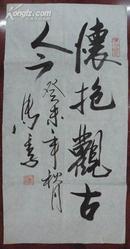 懷抱觀古
今
癸未年秋月